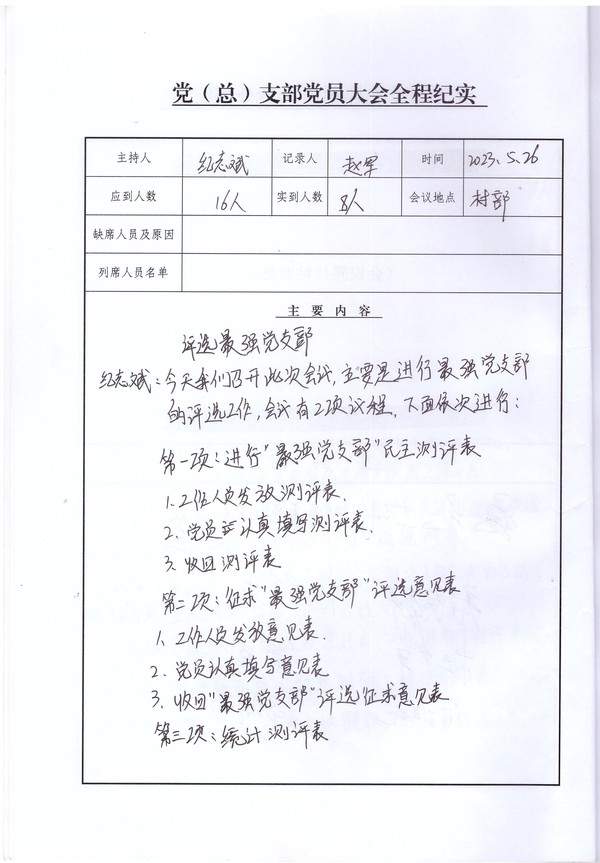 党（总）支部党员大会全程纪实
主持人 纪志斌 记录人 赵军 时间 2023.5.26
应到人数 16人 实到人数 8人 会议地点 村部
缺席人员及原因
列席人员名单
主要内容
评选最强党支部
纪志斌：今天我们召开此次会议，主要是进行最强党支部
的评选工作，会议有2项议程，下面依次进行：
第一项：进行"最强党支部"民主测评表
1.工作人员发放测评表.
2.党员认真填写测评表.
3.收回测评表
第二项：征求"最强党支部"评选意见表
1.工作人员发放意见表.
2.党员认真填写意见表
3.收回"最强党支部"评选征求意见表
第三项：统计测评表